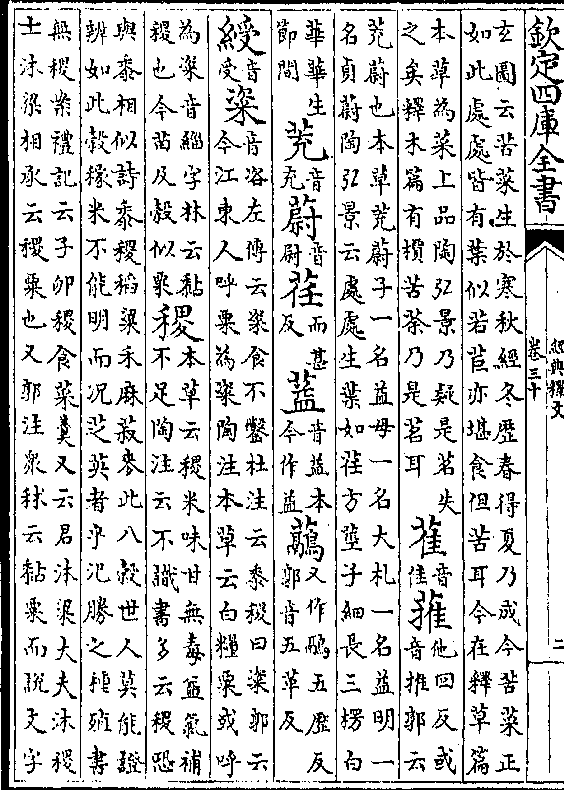 欽定四庫全書
經典釋文
卷三十
二
玄圖云苦菜生於寒秋經冬歷春得夏乃成今苦菜正
如此處處皆有葉似若苣亦堪食但苦耳今在釋草篇
本草為菜上品陶弘景乃疑是茗失
之矣釋木篇有檟苦荼乃是茗耳
萑音佳蓷他回反或
音推郭云
茺蔚也本草茺蔚子一名益母一名大札一名益明一
名貞蔚陶弘景云處處生葉如荏方莖子細長三楞白
華華生
節間
茺音充蔚音尉荏而甚反
音益本今作益
虉又作鷊五歷反
郭音五革反
綬音受
粢音咨左傳云粢食不鑿杜注云黍稷曰粢郭云
今江東人呼粟為粢陶注本草云白糧粟或呼
為粢音緇字林云黏
稷也今苗及穀似黍
稷本草云稷米味甘無毒益氣補
不足陶注云不識書多云稷恐
與黍相似詩黍稷稻粱禾麻菽麥此八穀世人莫能證
辨如此穀稼米不能明而況芝英者乎氾勝之種殖書
無稷案禮記云子卯稷食菜羹又云君沐粱大夫沐稷
士沐粱相承云稷粟也又郭注眾秫云黏粟而說文字